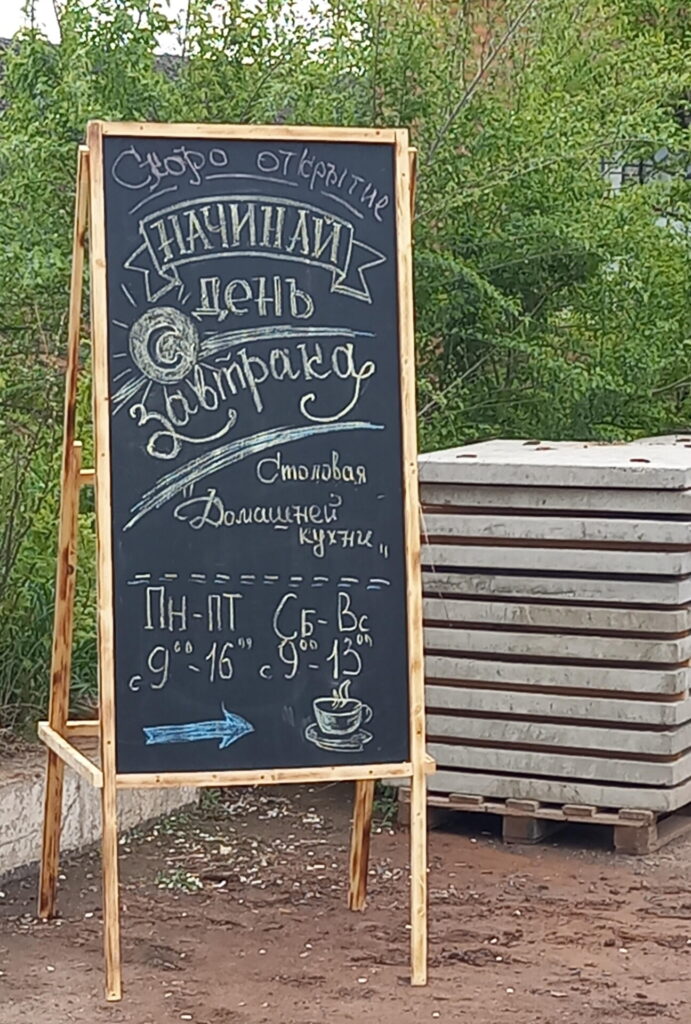 Скоро открытие
НАЧИНАЙ
день
С
завтрака
Столовая
"Домашней
кухни"
ПН-ПТ Сб-Вс
с 9⁰⁰-16⁰⁰ с 9⁰⁰-13⁰⁰